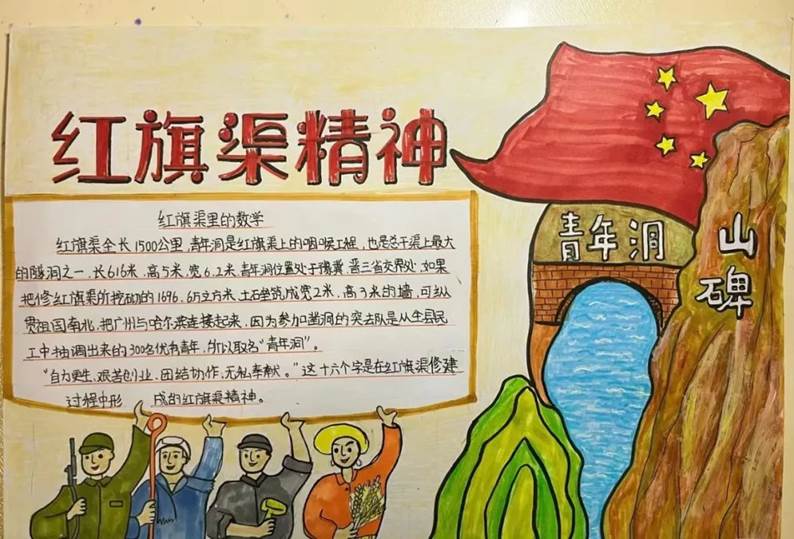 红旗渠精神
红旗渠里的数学
红旗渠全长1500公里,青年洞是红旗渠上的咽喉工程,也是总干渠上最大
的隧洞之一,长616米,高5米,宽6.2米,青年洞位置处于豫、冀、晋三省交界处,如果
把修红旗渠所挖动的1696.65万立方土石垒筑成宽2米,高3米的墙,可纵
贯祖国南北,把广州与哈尔滨连接起来,因为参加凿洞的突击队是从全县民
工中抽调出来的300名优秀青年,所以取名“青年洞”。
“自力更生,艰苦创业,团结协作,无私奉献。”这十六个字是在红旗渠修建
过程中形 成的红旗渠精神。
青年洞
山碑